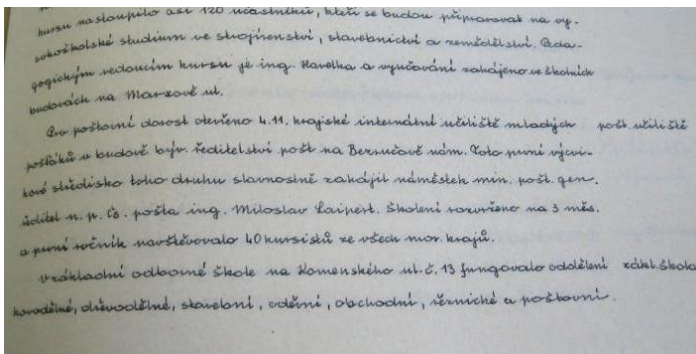 kursu nastoupilo asi 120 účastníků, kteří se budou připravovat na vy-
sokoškolské studium ve strojírenství, stavebnictví a zemědělství. Peda-
gogickým vedoucím kursu je ing. Havelka a vyučování zahájeno ve školních
budovách na Marxově ul.
Pro poštovní dorost otevřeno 4.11. krajské internátní učiliště mladých pošt. učiliště
pošťáků v budově býv. ředitelství pošt na Bezručově nám. Toto první výcvi-
kové středisko toho druhu slavnostně zahájil náměstek min. pošt. gen.
ředitel n. p. Čs. pošta ing. Miloslav Laipert. Školení rozvrženo na 3 měs.
a první ročník navštěvovalo 40 kursistů ze všech mor. krajů.
V základní odborné škole na Komenského ul. č. 13 fungovalo oddělení zákl. škola
kovodělné, dřevodělné, stavební, oděvní, obchodní, řeznické a poštovní.